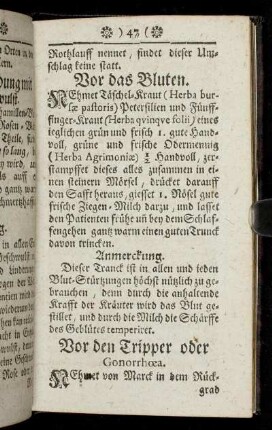 ) 47 (
Rothlauff nennet, findet dieser Um-
schlag keine statt.
Vor das Bluten.
NEhmet Täschel-Kraut (Herba bur-
sæ pastoris) Petersilien und Fünff-
finger-Kraut (Herba qvinqve folii) eines
ieglichen grün und frisch 1. gute Hand-
voll, grüne und frische Odermennig
(Herba Agrimoniæ) Handvoll, zer-
stampffet dieses alles zusammen in ei-
nen steinern Mörsel, drücket darauff
den Safft heraus, giesset 1. Rösel gute
frische Ziegen-Milch darzu, und lasset
den Patienten frühe uñ bey dem Schlaf-
fengehen gantz warm einen guten Trunck
davon trincken.
Anmerckung.
Dieser Tranck ist in allen und ieden
Blut-Stürtzungen höchst nützlich zu ge-
brauchen, denn durch die anhaltende
Krafft der Kräuter wird das Blut ge-
stillet, und durch die Milch die Schärffe
des Geblütes temperiret.
Vor den Tripper oder
Gonorrhœa.
NEhmet von Marck in dem Rück-
grad